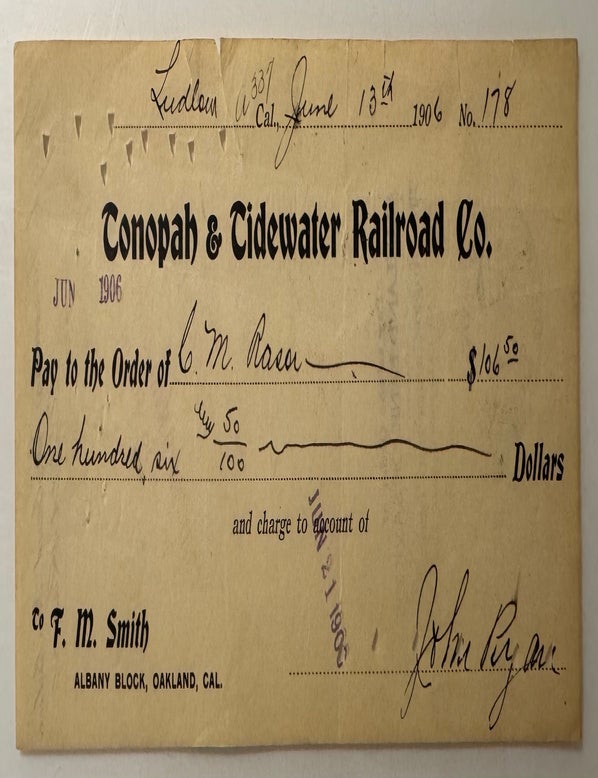 Ludlow Cal., June 13th 1906 No. 178
A337
Tonopah & Tidewater Railroad Co.
JUN 1906
Pay to the Order of C. M. Rasor $106 50
One hundred six 50/100 Dollars
and charge to account of
JUN 21 1906
To F. M. Smith
ALBANY BLOCK, OAKLAND, CAL.
John Ryan